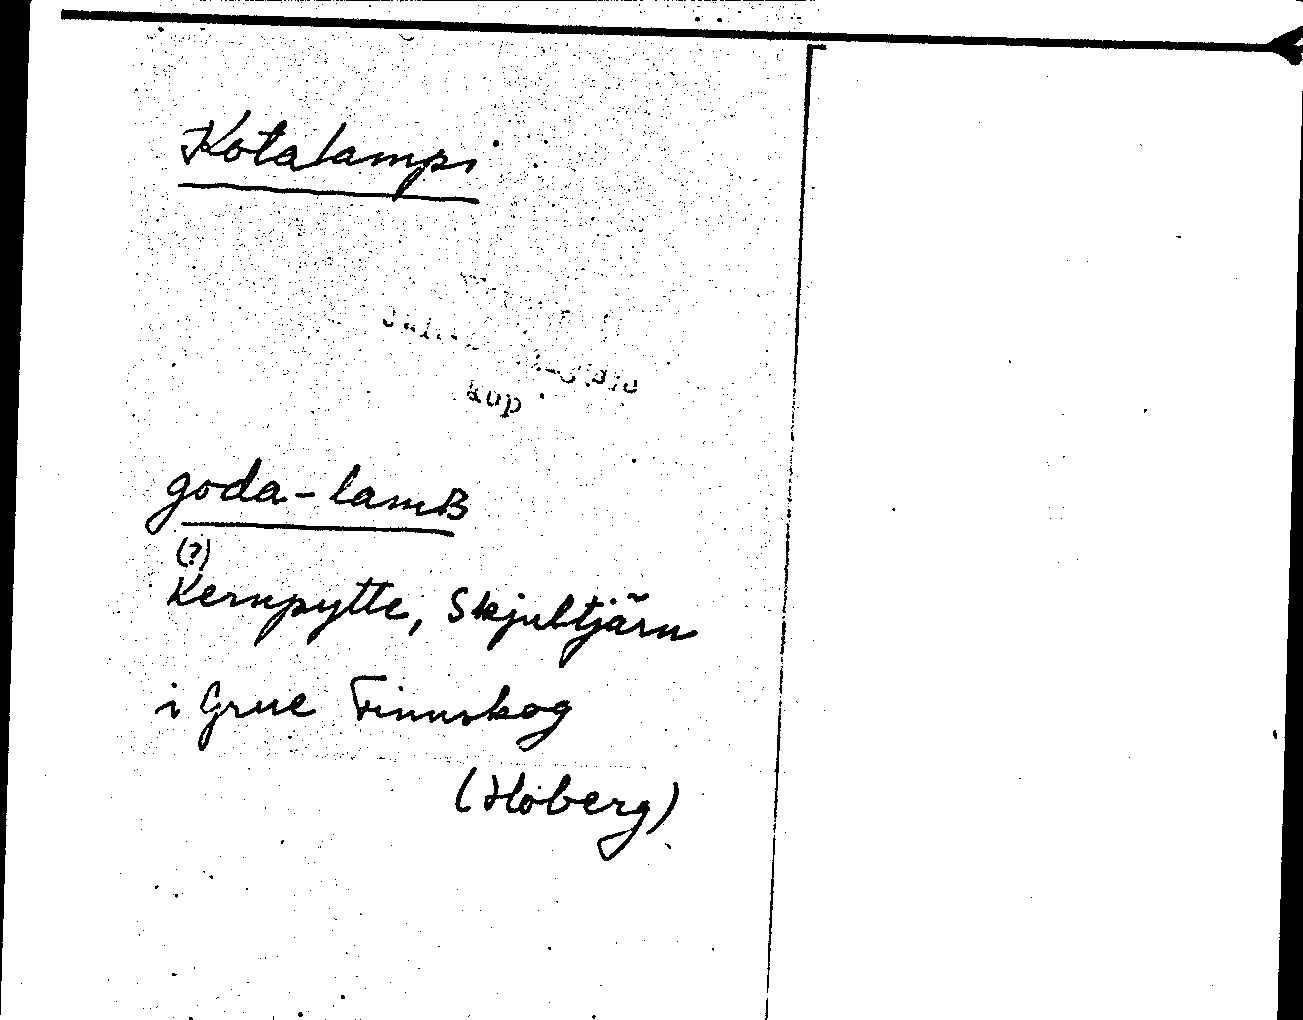 Kotalampi
kop
goda-lamB
(?)
Kernpytte, Skjultjärn
i Grue Finnskog
(Hoberg)